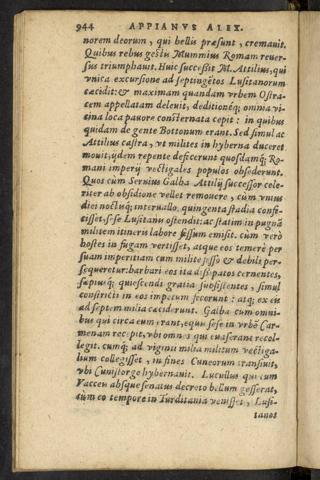 944 APPIANVS ALEX.
norem deorum, qui bellis præsunt, cremauit.
Quibus rebus gestis Mummius Romam reuer-
sus triumphauit. Huic successit M. Attilius, qui
vnica excursione ad septingētos Lusitanorum
cæcidit: & maximam quandam vrbem Ostra-
cem appellatam deleuit, deditionéq; omnia vi-
cina loca pauore consternata cepit: in quibus
quidam de gente Bottonum erant. Sed simul ac
Attilius castra, vt milites in hyberna duceret
mouit, ijdem repente defecerunt quosdamq; Ro-
mani imperij vectigales populos obsederunt.
Quos cùm Seruius Galba Attilij successor cele-
riter ab obsidione vellet remouere, cùm vnius
diei noctisq; interuallo, quingenta stadia confe-
cisset, sese Lusitanis ostendit: ac statim in pugnā
militem itineris labore fessum emisit. cùm verò
hostes in fugam vertisset, atque eos temerè per
suam imperitiam cum milite fesso & debili per-
sequeretur: barbari eos ita dissipatos cernentes,
sæpiusq; quiescendi gratia subsistentes, simul
constricti in eos impetum fecerunt: atq; ex eis
ad septem milia cæciderunt. Galba cum omni-
bus qui circa eum erant, equis sese in vrbē Car-
menam recepit, vbi omnes qui euaserant recol-
legit. cumq; ad viginti milia militum vectiga-
lium collegisset, in fines Cuneorum transiuit,
vbi Cunistorge hybernauit. Lucullus qui cum
Vacceis absque senatus decreto bellum gesserat,
cùm eo tempore in Turditania venisset, Lusi-
tanos